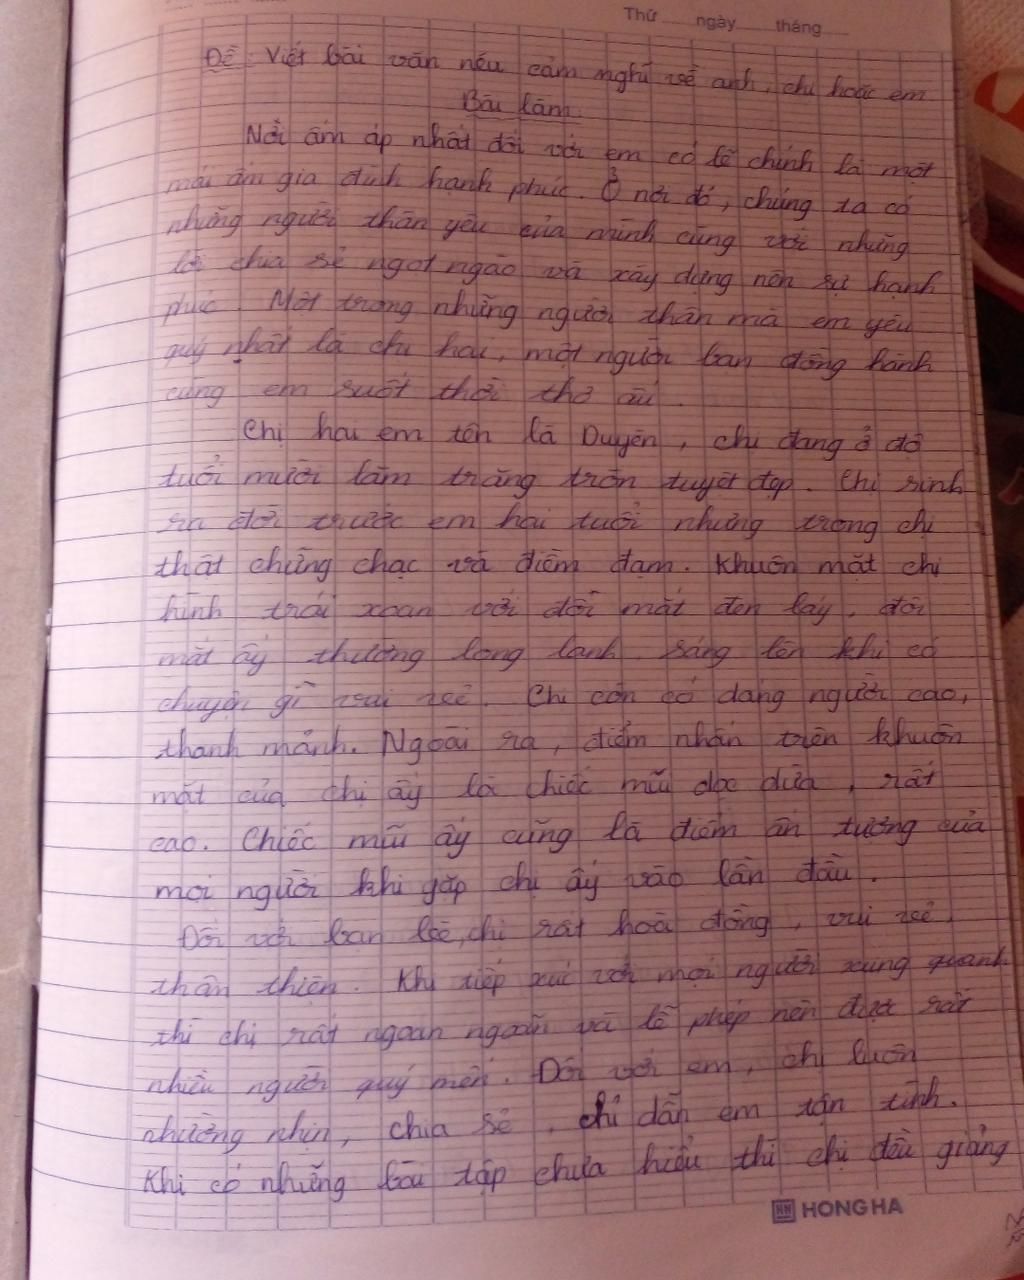 Thứ ngày tháng
Đề: Viết bài văn nêu cảm nghĩ về anh, chị hoặc em
Bài làm.
Nơi ấm áp nhất đối với em có lẽ chính là một
mái ấm gia đình hạnh phúc. Ở nơi đó, chúng ta có
những người thân yêu của mình cùng với những
lời chia sẻ ngọt ngào và xây dựng nên sự hạnh
phúc. Một trong những người thân mà em yêu
quý nhất là chị hai, một người bạn đồng hành
cùng em suốt thời thơ ấu.
Chị hai em tên là Duyên, chị đang ở độ
tuổi mười lăm trăng tròn tuyệt đẹp. Chị sinh
ra đời trước em hai tuổi nhưng trong chị
thật chững chạc và điềm đạm. Khuôn mặt chị
hình trái xoan với đôi mắt đen láy, đôi
mắt ấy thường long lanh sáng lên khi có
chuyện gì vui vẻ. Chị còn có dáng người cao,
thanh mảnh. Ngoài ra, điểm nhấn trên khuôn
mặt của chị ấy là chiếc mũi dọc dừa, rất
cao. Chiếc mũi ấy cũng là điểm ấn tượng của
mọi người khi gặp chị ấy vào lần đầu.
Đối với bạn bè, chị rất hoà đồng, vui vẻ,
thân thiện. Khi tiếp xúc với mọi người xung quanh
thì chị rất ngoan ngoãn và lễ phép nên được rất
nhiều người quý mến. Đối với em, chị luôn
nhường nhịn, chia sẻ, chỉ dẫn em tận tình.
Khi có những bài tập chưa hiểu thì chị đều giảng
HH HONG HA